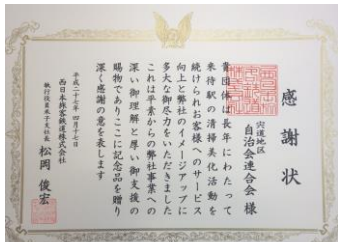 感謝状
宍道地区
自治会連合会 様
貴団体は長年にわたって
来待駅の清掃美化活動を
続けられお客様へのサービス
向上と弊社のイメージアップに
多大な御尽力をいただきました
これは平素からの弊社事業への
深い御理解と厚い御支援の
賜物でありここに記念品を贈り
深く感謝の意を表します
平成二十七年 四月十七日
西日本旅客鉄道株式会社
執行役員米子支社長 松岡 俊宏